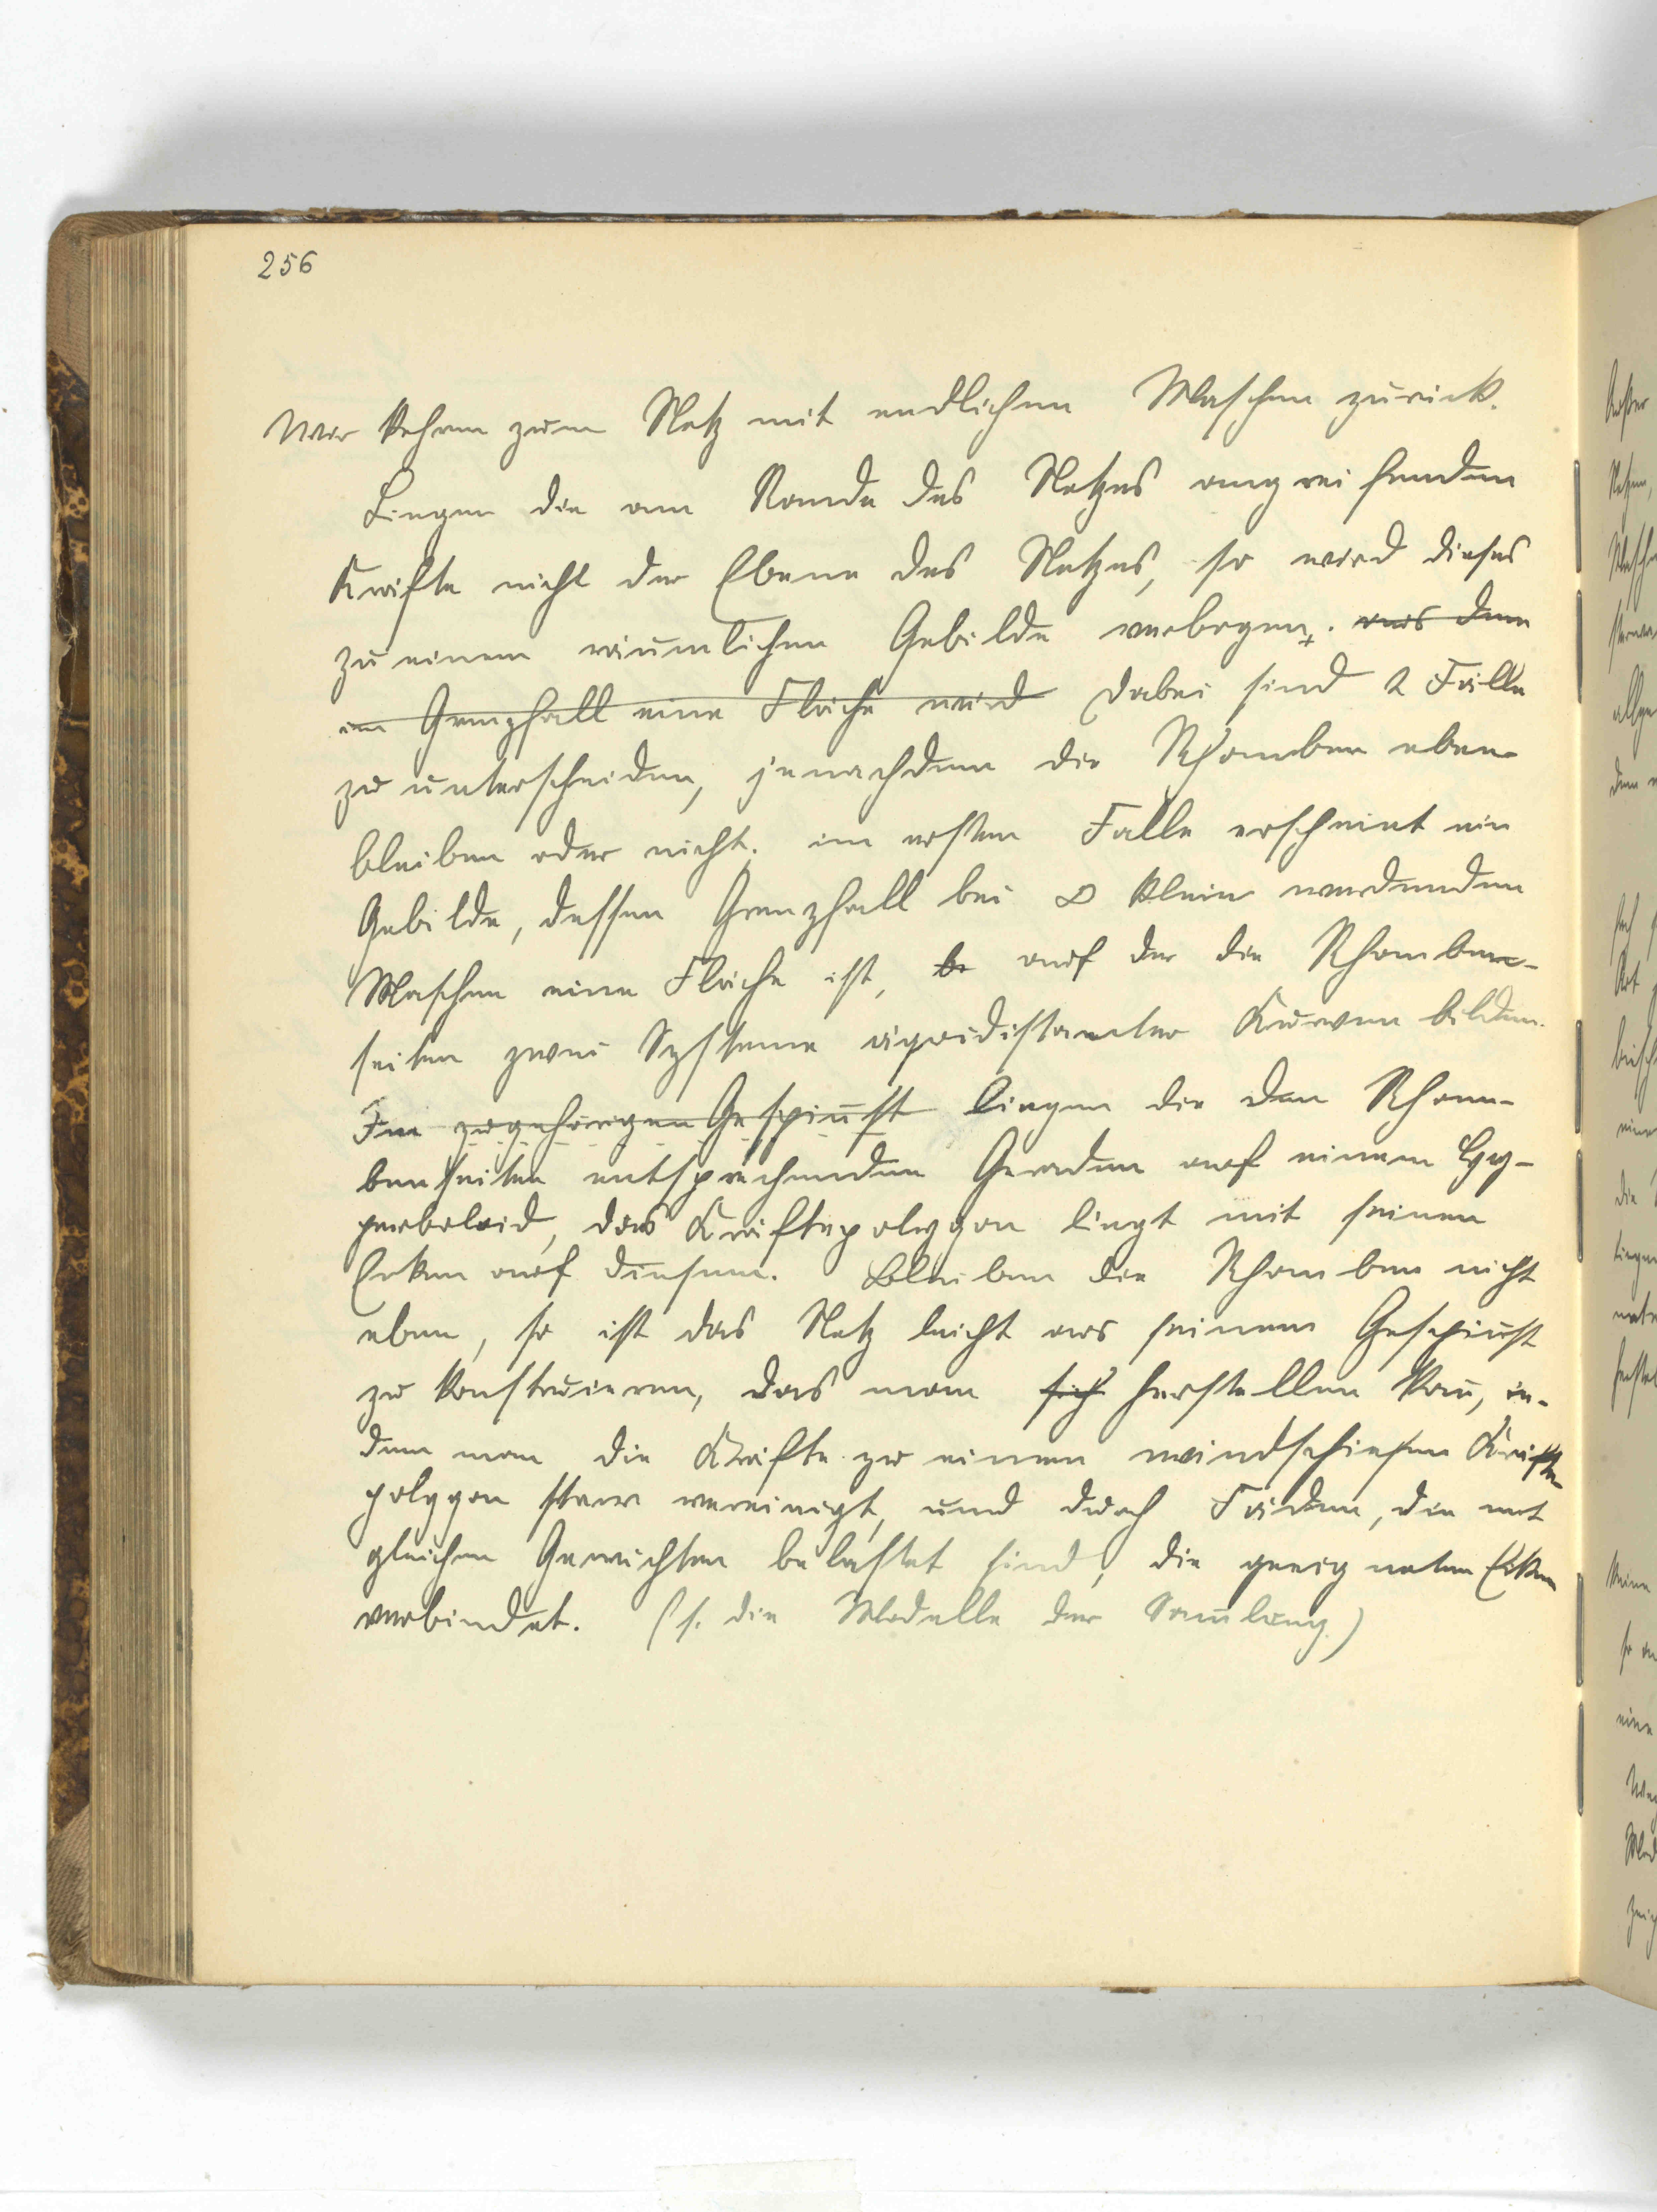 256
Wir kehren zum Netz mit endlichen Maschen zurück.
Liegen die am Rande des Netzes angreifenden
Kräfte nicht der Ebene des Netzes, so wird dieses
zu einem räumlichen Gebilde verbogen. aus dem
im Grenzfall eine Fläche wird Dabei sind 2 Fälle
zu unterscheiden, jenachdem die Rhomben eben
bleiben oder nicht. im ersten Falle erscheint ein
Gebilde, dessen Grenzfall bei ∞ klein werdenden
Maschen eine Fläche ist, auf der die Rhomben-
seiten zwei Systeme äquidistanter Kurven bilden.
Im zugehörigen Gespinst liegen die den Rhom-
benseiten entsprechenden Geraden auf einem Hy-
perboloid, das Kräftepolygon liegt mit seinen
Ecken auf diesem. Bleiben die Rhomben nicht
eben, so ist das Netz leicht aus seinem Gespinst
zu konstruieren, das man sich herstellen kan̄, in-
dem man die Kräfte zu einem windschiefen Kräfte-
polygon starr vereinigt, und durch Fäden, die mit
gleichen Gewichten belastet sind, die geeigneten Ecken
verbindet. (s. die Modelle der Sam̄lung.)